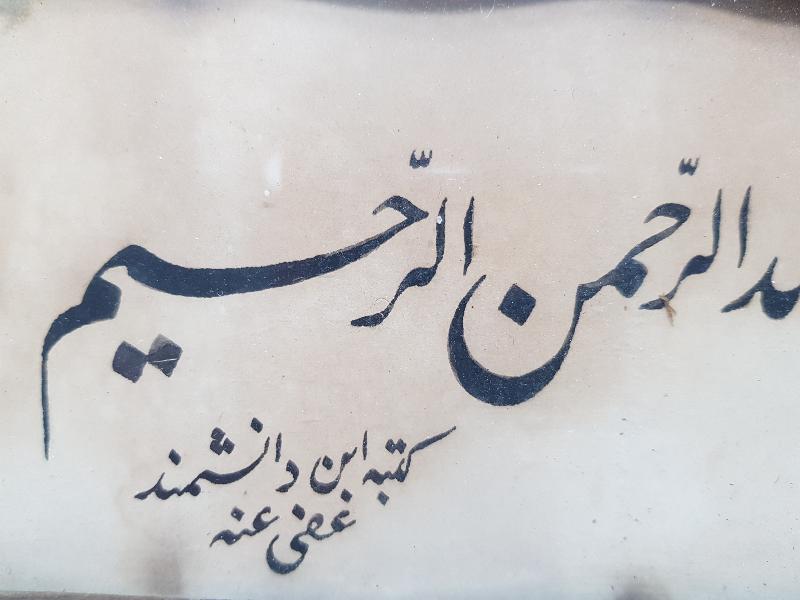 الرّحمن الرّحیم
کتبه ابن دانشمند
غفی عنه